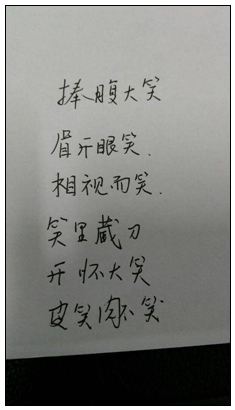 捧腹大笑
眉开眼笑.
相视而笑.
笑里藏刀
开怀大笑
皮笑肉不笑